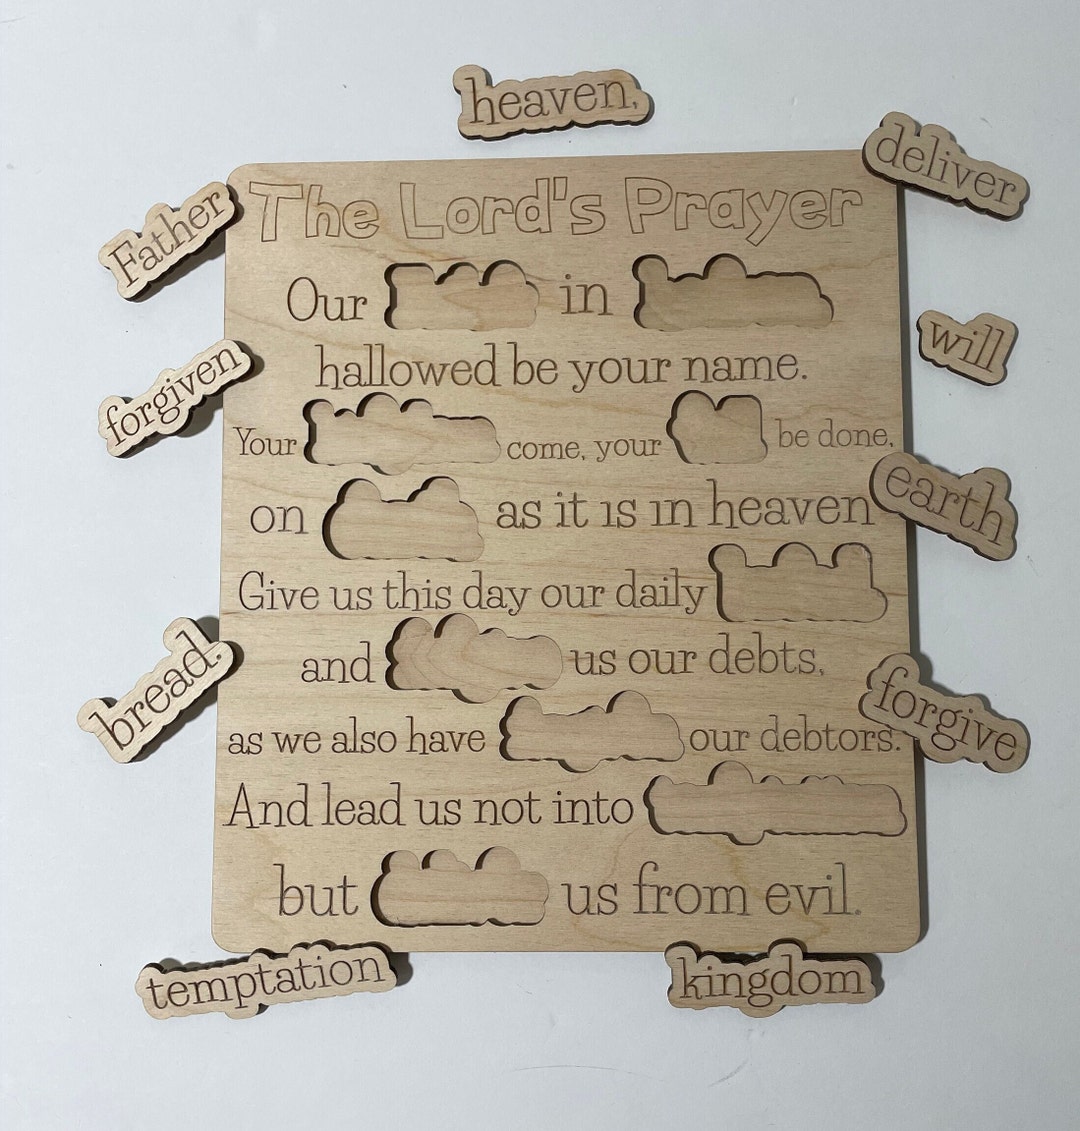 heaven,
deliver
The Lord's Prayer
Father
Our in
will
hallowed be your name.
forgiven
Your come, your be done,
earth
on as it is in heaven
Give us this day our daily
bread.
and us our debts,
forgive
as we also have our debtors.
And lead us not into
but us from evil.
temptation
kingdom